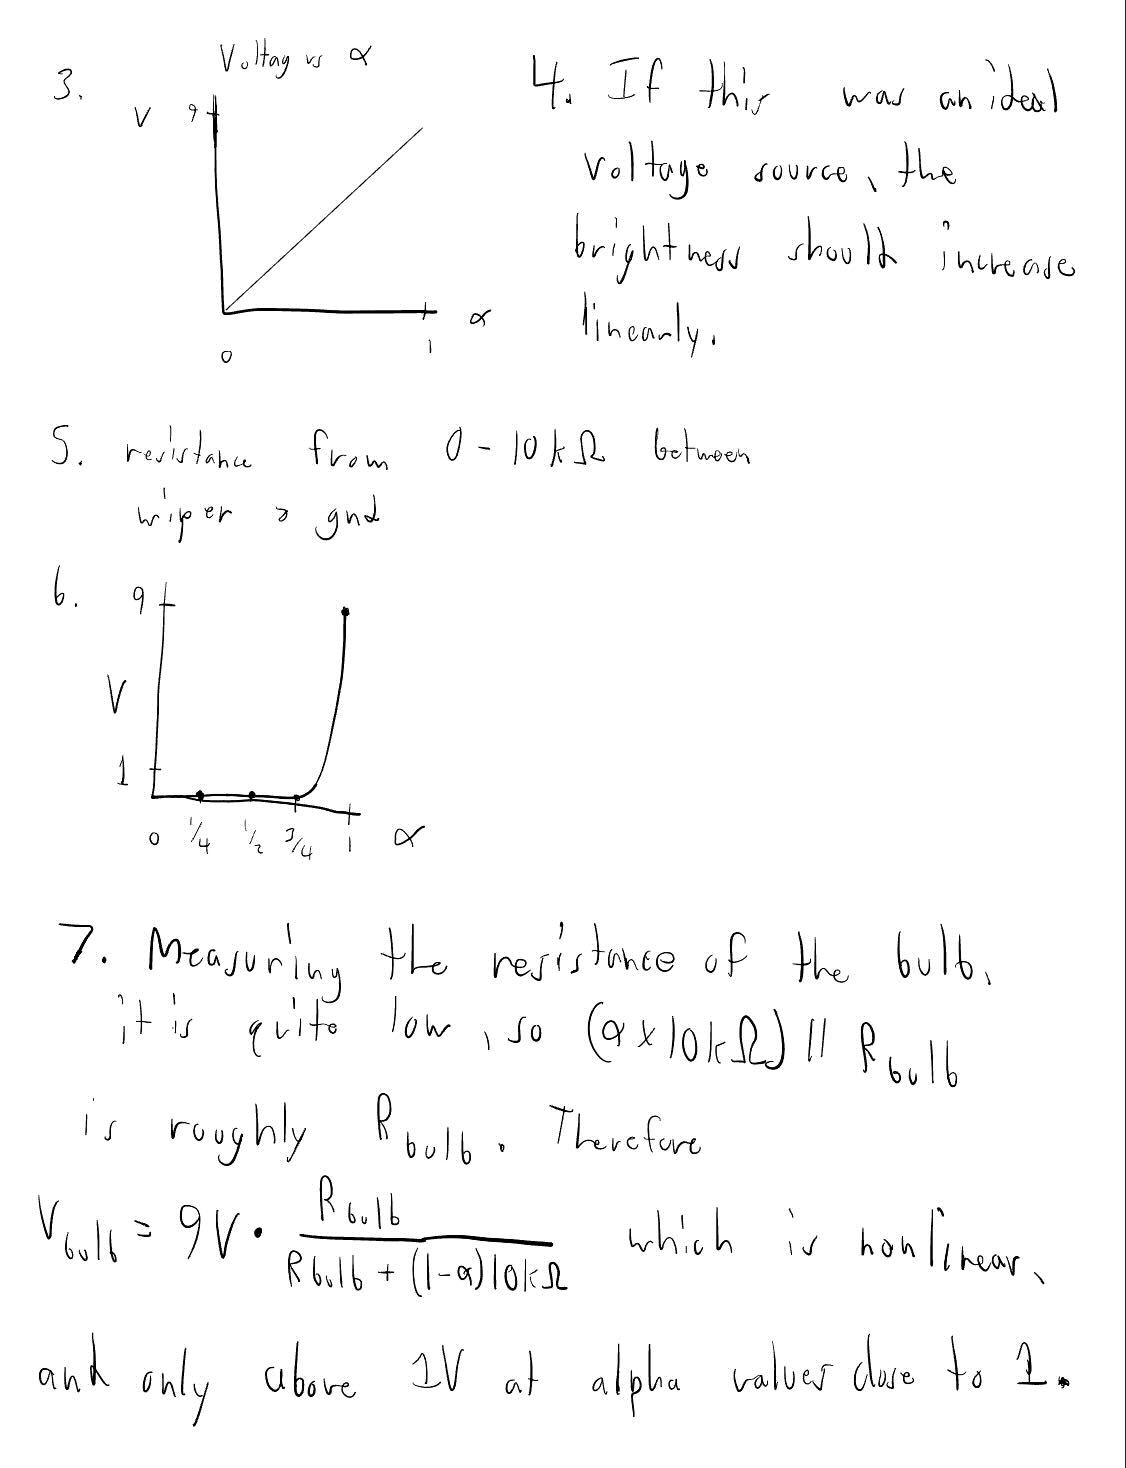 3.
Voltag vs α
V
9
0
1
α
4. If this was an ideal
voltage source, the
brightness should increase
linearly.
5. resistance from 0 - 10kΩ between
wiper > gnd
6.
9
V
1
0 1/4 1/2 3/4 1 α
7. Measuring the resistance of the bulb,
it is quite low, so (α x 10kΩ) || Rbulb
is roughly Rbulb. Therefore
Vbulb = 9V · Rbulb / Rbulb + (1-α)10kΩ which is nonlinear,
and only above 1V at alpha values close to 1.